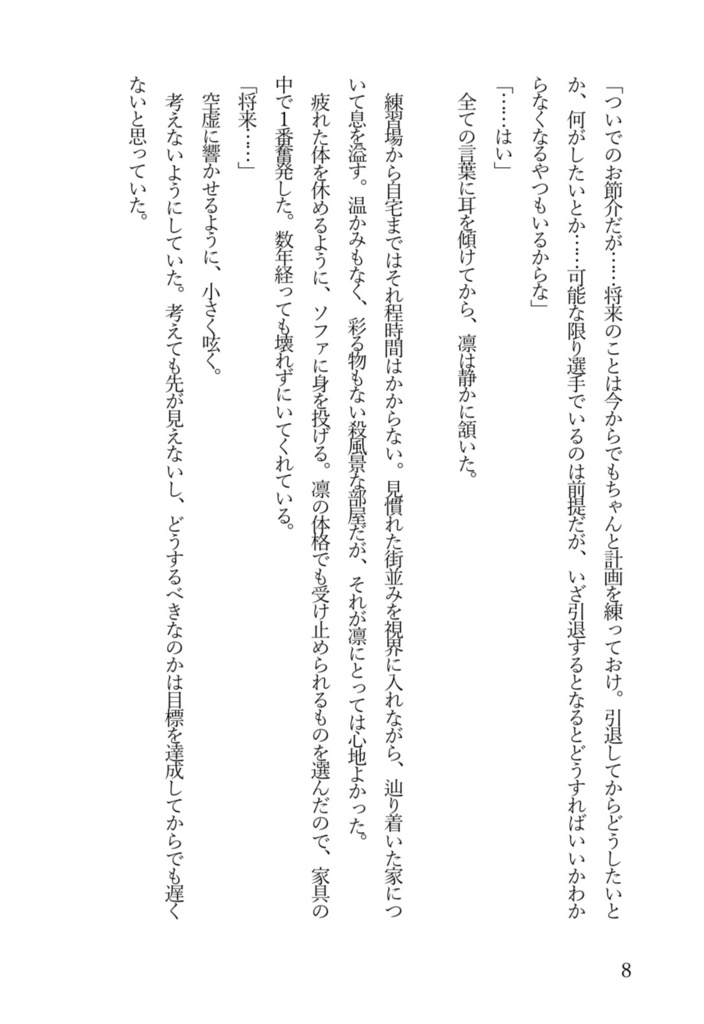 「ついでのお節介だが……将来のことは今からでもちゃんと計画を練っておけ。引退してからどうしたいと
か、何がしたいとか……可能な限り選手でいるのは前提だが、いざ引退するとなるとどうすればいいかわか
らなくなるやつもいるからな」
「……はい」
全ての言葉に耳を傾けてから、凛は静かに頷いた。
練習場から自宅まではそれ程時間はかからない。見慣れた街並みを視界に入れながら、辿り着いた家につ
いて息を溢す。温かみもなく、彩る物もない殺風景な部屋だが、それが凛にとっては心地よかった。
疲れた体を休めるように、ソファに身を投げる。凛の体格でも受け止められるものを選んだので、家具の
中で１番奮発した。数年経っても壊れずにいてくれている。
「将来……」
空虚に響かせるように、小さく呟く。
考えないようにしていた。考えても先が見えないし、どうするべきなのかは目標を達成してからでも遅く
ないと思っていた。
8